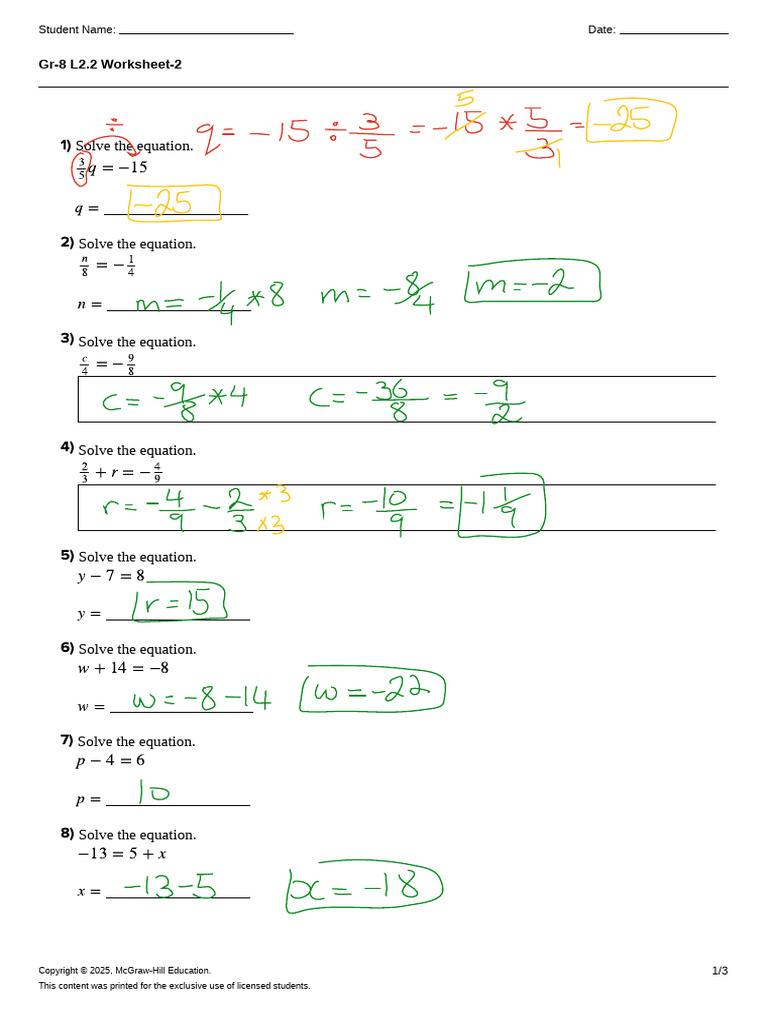 Student Name: Date:
Gr-8 L2.2 Worksheet-2
÷
q = -15 ÷ 3/5 = -15 5 * 5/3 1 = -25
1) Solve the equation.
3/5 q = −15
q = -25
2) Solve the equation.
n/8 = −1/4
n = m = -1/4 * 8 m = -8/4 m = -2
3) Solve the equation.
c/4 = −9/8
c = -9/8 * 4 c = -36/8 = -9/2
4) Solve the equation.
2/3 + r = −4/9
r = -4/9 - 2/3 * 3 x 3 r = -10/9 = -1 1/9
5) Solve the equation.
y − 7 = 8
y = r = 15
6) Solve the equation.
w + 14 = −8
w = w = -8 -14 w = -22
7) Solve the equation.
p − 4 = 6
p = 10
8) Solve the equation.
−13 = 5 + x
x = -13-5 x = -18
Copyright © 2025, McGraw-Hill Education. 1/3
This content was printed for the exclusive use of licensed students.